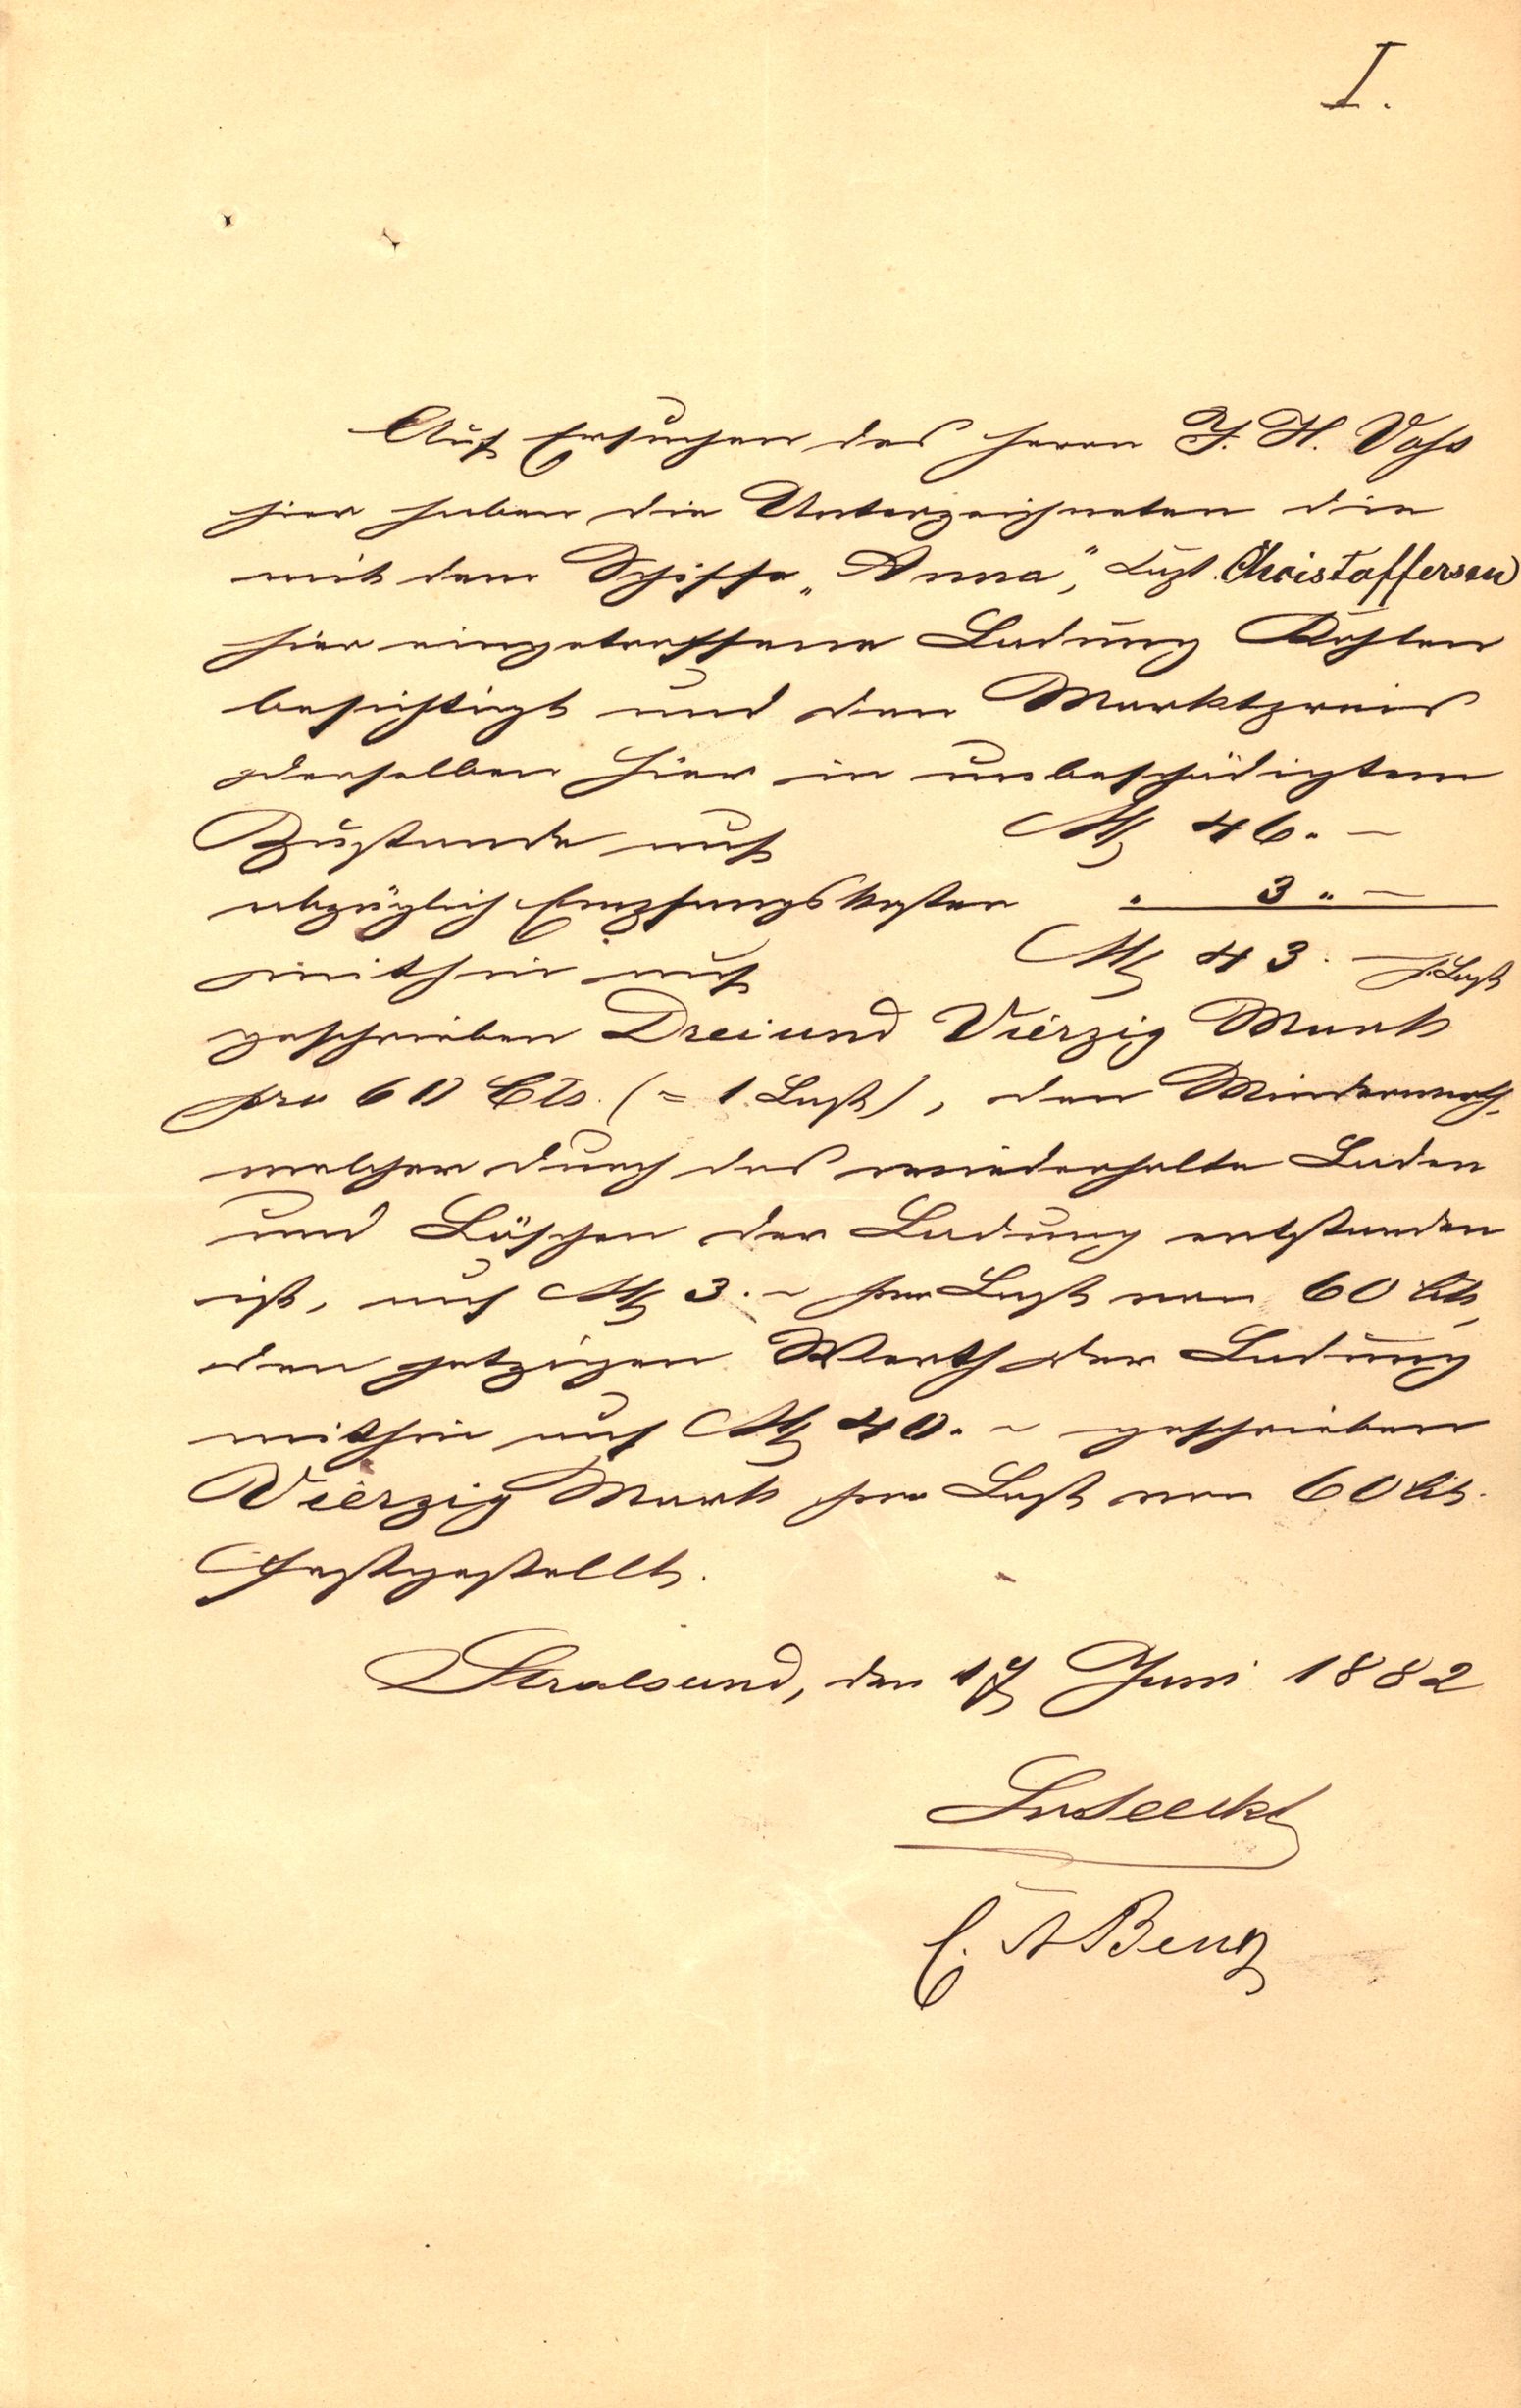 I.
Auf Ersuchen des Herrn J. H. Voss
hier haben die Unterzeichneten die
mit dem Schiffe „Anna“, Capt. Christoffersen
hier eingetroffene Ladung Kohlen
besichtigt und den Marktpreis
derselben hier in unbeschädigtem
Zustande auf M 46.–
abzüglich Empfangskosten " 3.–
mithin auf M 43.– p. Last
geschrieben Dreiund Vierzig Mark
pro 60 Ctr. (= 1 Last), den Minderwerth,
welcher durch das wiederholte Laden
und Löschen der Ladung entstanden
ist, auf M 3.– pro Last von 60 Ctr.,
den jetzigen Werth der Ladung
mithin auf M 40.– geschrieben
Vierzig Mark pro Last von 60 Ctr.
festgestellt.
Stralsund, den 17 Juni 1882
C. A Benz